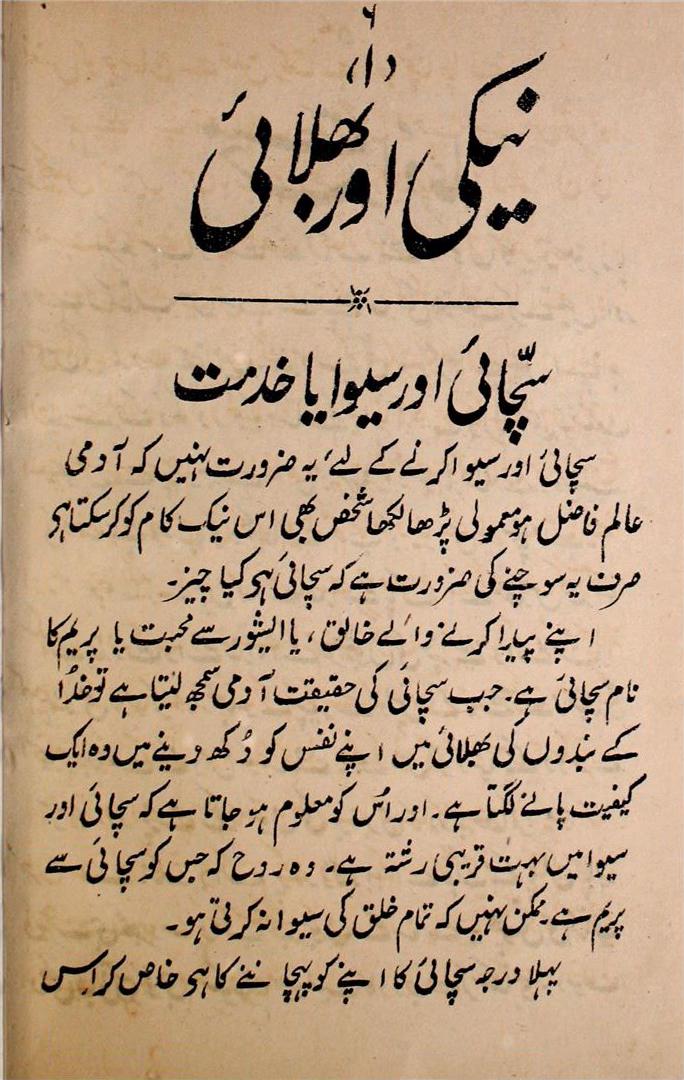 ۶
(۱)
نیکی اور بھلائی
سچّائی اور سیوا یا خدمت
سچائی اور سیوا کرنے کے لئے یہ ضرورت نہیں کہ آدمی
عالم فاضل ہو معمولی پڑھا لکھا شخص بھی اس نیک کام کو کر سکتا ہی
صرف یہ سوچنے کی ضرورت ہے کہ سچائی ہو کیا چیز۔
اپنے پیدا کرنے والے خالق، یا ایشور سے محبت یا پریم کا
نام سچائی ہے۔ جب سچائی کی حقیقت آدمی سمجھ لیتا ہے تو خدا
کے بندوں کی بھلائی میں اپنے نفس کو دُکھ دینے میں وہ ایک
کیفیت پانے لگتا ہے۔ اور اُس کو معلوم ہو جاتا ہے کہ سچائی اور
سیوا میں بہت قریبی رشتہ ہے۔ وہ روح کہ جس کو سچائی سے
پریم ہے۔ ممکن نہیں کہ تمام خلق کی سیوا نہ کرتی ہو۔
پہلا درجہ سچائی کا اپنے کو پہچاننے کا ہو خاص کر اس